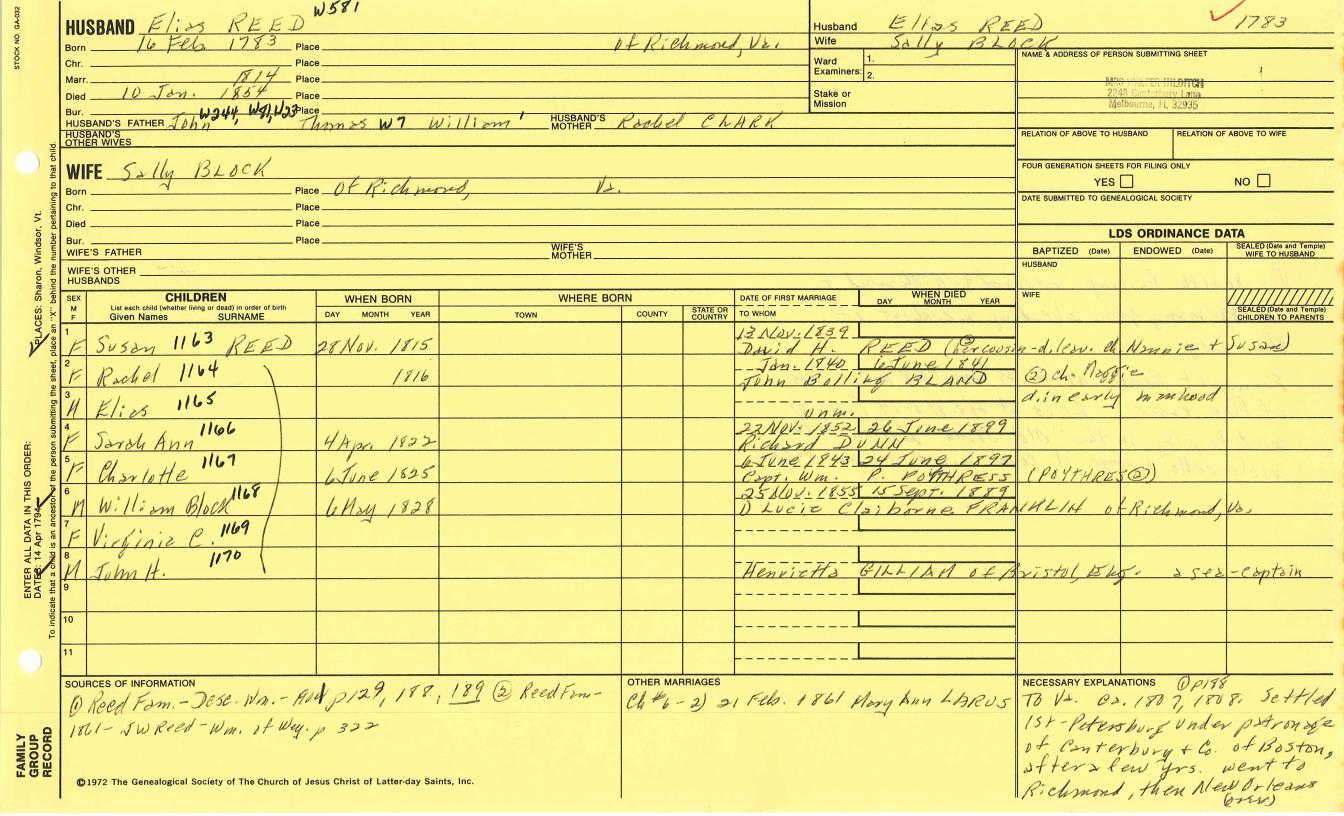 STOCK NO. GA-032
W581
HUSBAND Elias REED
Born 16 Feb 1783 Place of Richmond, Va.
Chr. Place
Marr. 1814 Place
Died 10 Jan. 1854 Place
Bur. Place
W244, W81, W23
HUSBAND'S FATHER John Thomas W7 William' HUSBAND'S MOTHER Rachel CLARK
HUSBAND'S OTHER WIVES
WIFE Sally BLOCK
Born Place of Richmond, Va.
Chr. Place
Died Place
Bur. Place
WIFE'S FATHER WIFE'S MOTHER
WIFE'S OTHER HUSBANDS
Husband Elias REED 1783
Wife Sally BLOCK
Ward Examiners: 1.
2.
Stake or Mission
NAME & ADDRESS OF PERSON SUBMITTING SHEET
MRS WALTER HILDITCH
2248 Canterbury Lane
Melbourne, FL 32935
RELATION OF ABOVE TO HUSBAND RELATION OF ABOVE TO WIFE
FOUR GENERATION SHEETS FOR FILING ONLY
YES NO
DATE SUBMITTED TO GENEALOGICAL SOCIETY
LDS ORDINANCE DATA
BAPTIZED (Date) ENDOWED (Date) SEALED (Date and Temple) WIFE TO HUSBAND
HUSBAND
WIFE
SEALED (Date and Temple) CHILDREN TO PARENTS
SEX M F
CHILDREN
List each child (whether living or dead) in order of birth
Given Names SURNAME
WHEN BORN
DAY MONTH YEAR
WHERE BORN
TOWN COUNTY STATE OR COUNTRY
DATE OF FIRST MARRIAGE
TO WHOM
WHEN DIED
DAY MONTH YEAR
1 F Susan 1163 REED 28 Nov. 1815 13 Nov. 1839
David H. REED (her cousin-d. leav. ch Nannie + Susan)
2 F Rachel 1164 1816 Jan. 1840 6 June 1841
John Bolling BLAND (2) ch. Maggie
3 M Elias 1165 unm. d. in early manhood
4 F Sarah Ann 1166 4 Apr. 1822 22 Nov. 1852 26 June 1899
Richard DUNN
5 F Charlotte 1167 6 June 1825 6 June 1843 24 June 1897
Capt. Wm. P. POYTHRESS (POYTHRES (2))
6 M William Block 1168 6 May 1828 25 Nov. 1855 15 Sept. 1889
Lucie Claiborne FRANKLIN of Richmond, Va.
7 F Virginia C. 1169
8 M John H. 1170 Henrietta GILLIAM of Bristol, Eng. a sea-captain
9
10
11
SOURCES OF INFORMATION
(1) Reed Fam.-Desc. Wm.- p129, 188, 189 (2) Reed Fam-
1861- JW Reed-Wm. of Wey. p 322
OTHER MARRIAGES
Ch #6-2) 21 Feb. 1861 Mary Ann LARUS
NECESSARY EXPLANATIONS (1) p188
To Va. ca. 1807, 1808. Settled
1st-Petersburg under patronage
of Canterbury + Co. of Boston,
after a few yrs. went to
Richmond, then New Orleans
(over)
©1972 The Genealogical Society of The Church of Jesus Christ of Latter-day Saints, Inc.
FAMILY GROUP RECORD
ENTER ALL DATA IN THIS ORDER:
DATES: 14 Apr 1794
PLACES: Sharon, Windsor, Vt.
To indicate that a child is an ancestor of the person submitting the sheet, place an "X" behind the number pertaining to that child.